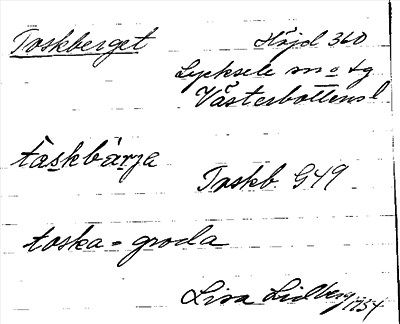 Toskberget Höjd 360
Lycksele sn o tg
Västerbottens l
tåskbärja
Toskb. G49
toska = groda
Lisa Lidberg 1954